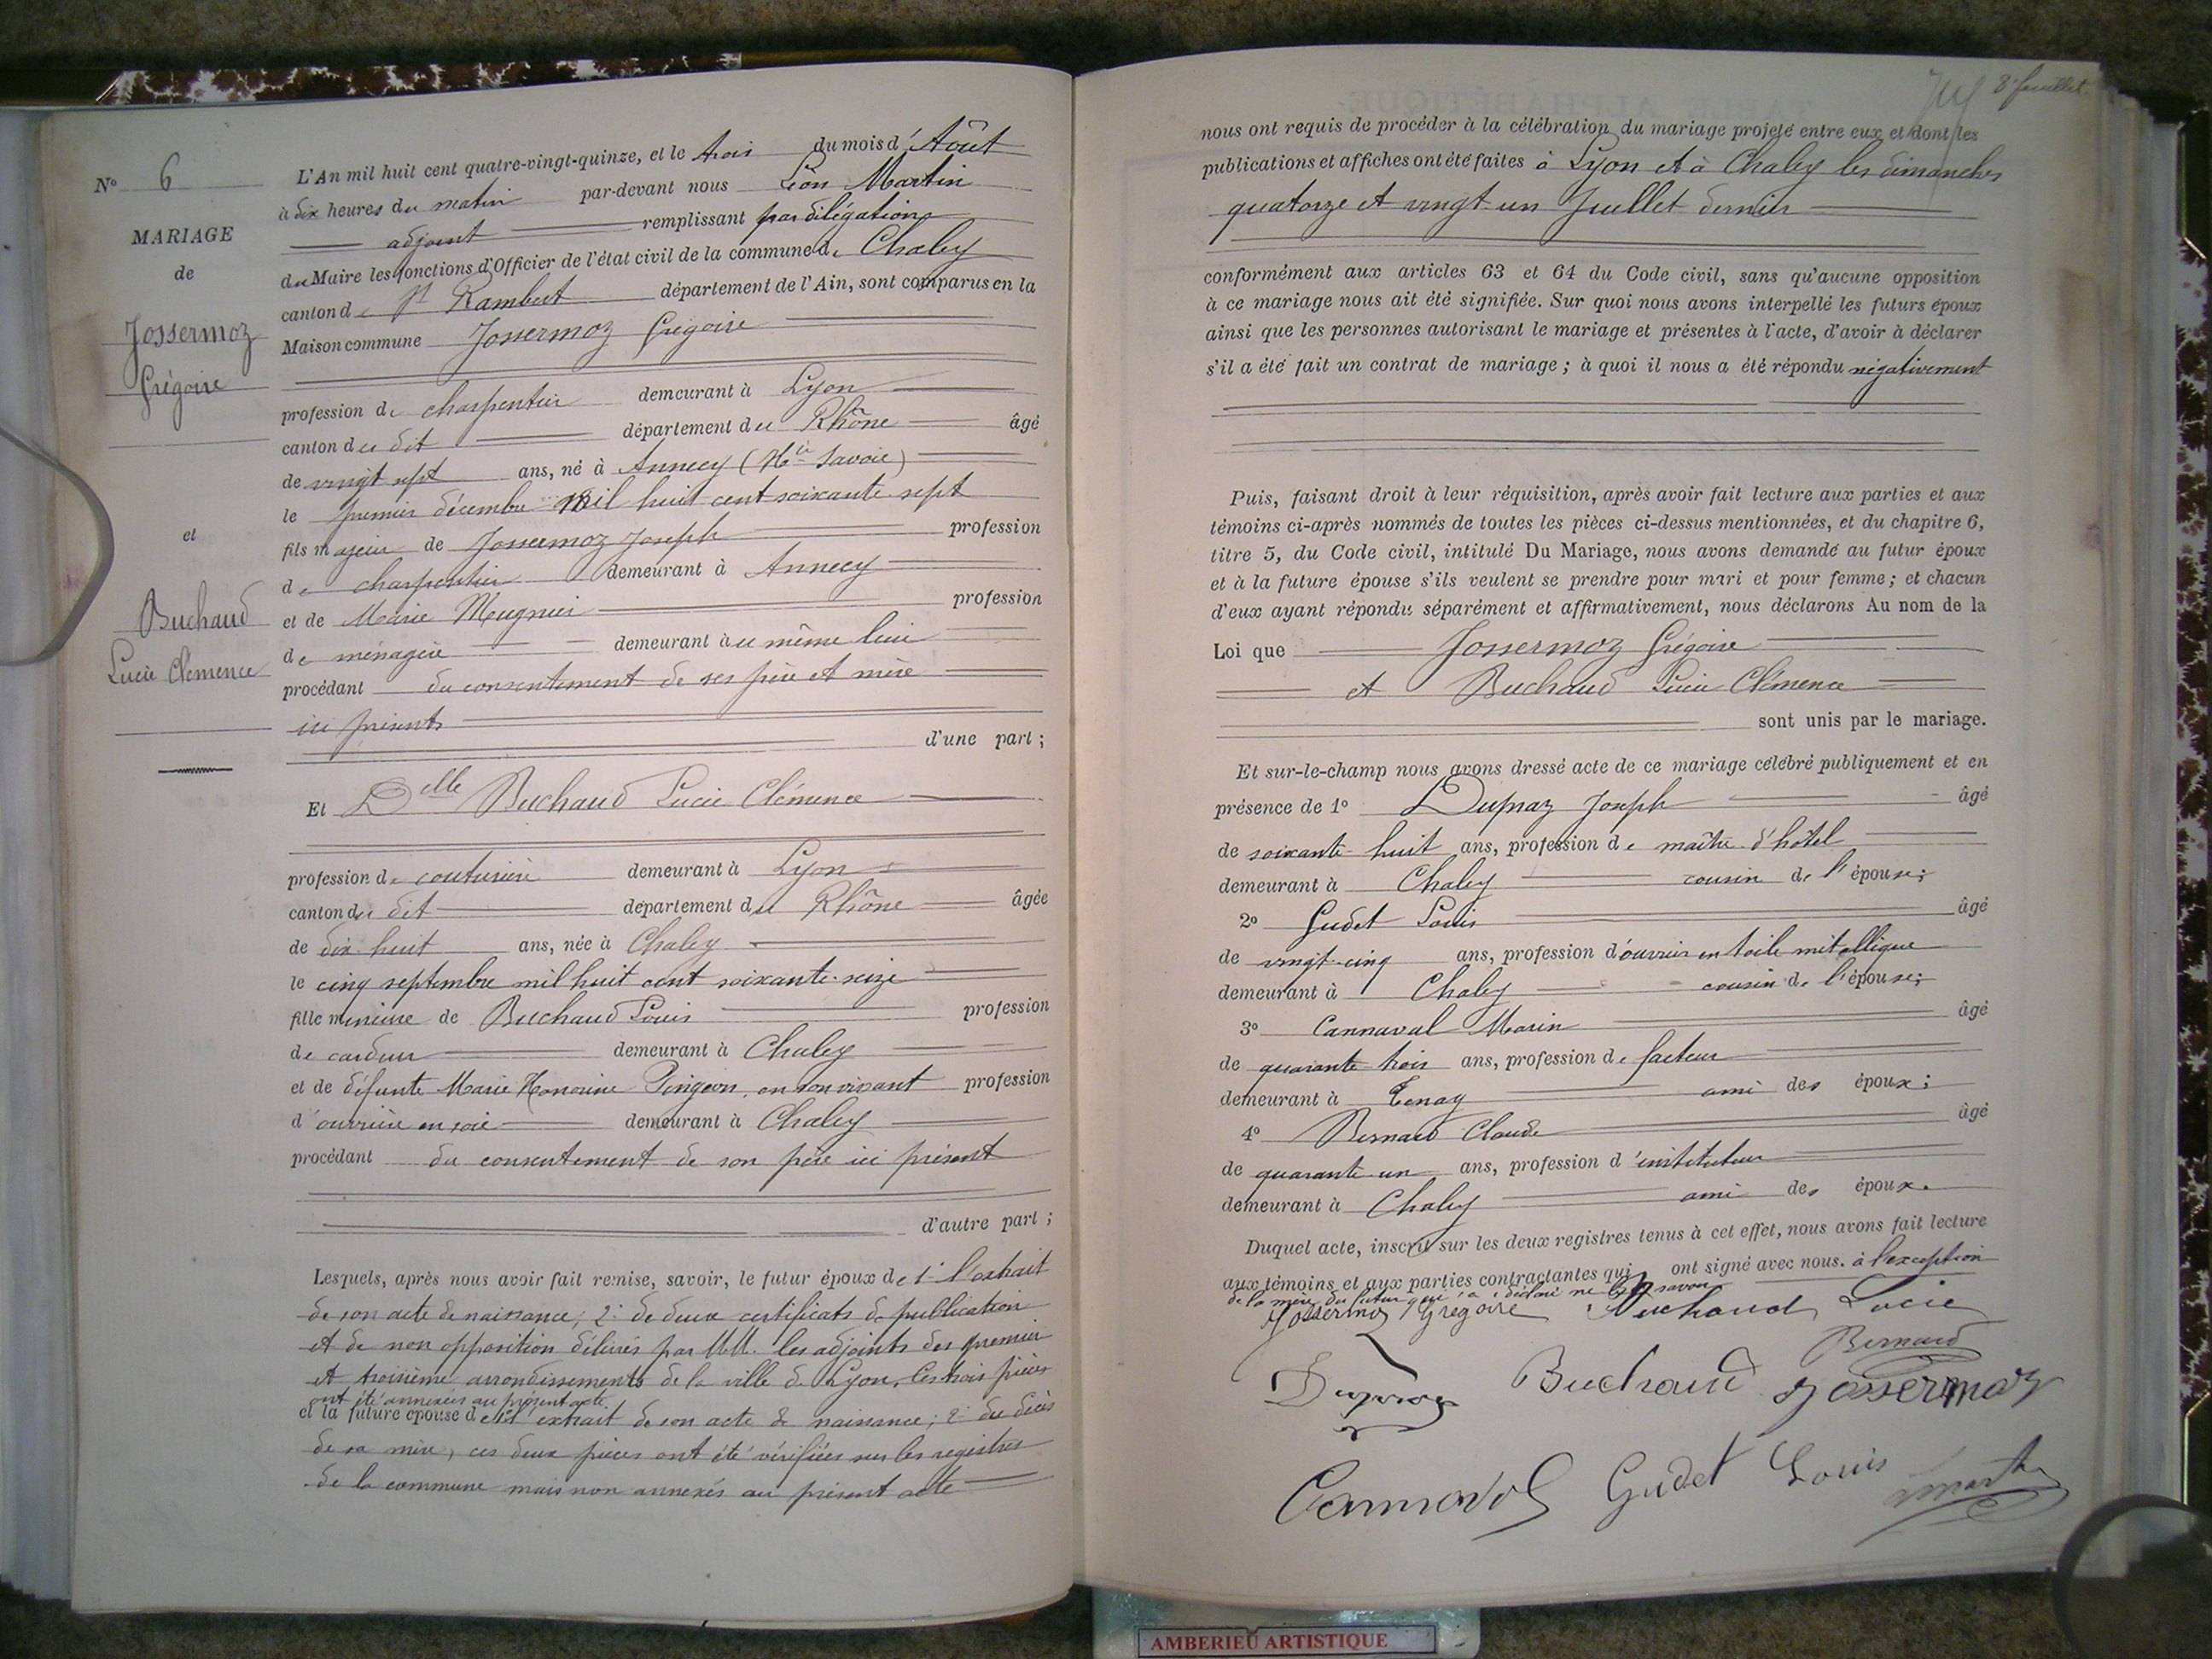 N° 6
MARIAGE
de
Jossermoz
Grégoire
et
Buchaud
Lucie Clémence
L'An mil huit cent quatre-vingt-quinze, et le trois du mois d'Août
à dix heures du matin par-devant nous Léon Martin
adjoint remplissant par délégation
du Maire les fonctions d'Officier de l'état civil de la commune de Chaley
canton de St Rambert département de l'Ain, sont comparus en la
Maison commune Jossermoz Grégoire
profession de charpentier demeurant à Lyon
canton du dit département du Rhône âgé
de vingt sept ans, né à Annecy (Hte Savoie)
le premier décembre mil huit cent soixante-sept
fils majeur de Jossermoz Joseph profession
de charpentier demeurant à Annecy
et de Marie Meugnier profession
de ménagère demeurant au même lieu
procédant du consentement de ses père et mère
ici présents
d'une part;
Et Delle Buchaud Lucie Clémence
profession de couturière demeurant à Lyon
canton du dit département du Rhône âgée
de dix-huit ans, née à Chaley
le cinq septembre mil huit cent soixante-seize
fille mineure de Buchaud Louis profession
de cardeur demeurant à Chaley
et de défunte Marie Honorine Pingeon, en son vivant profession
d'ouvrière en soie demeurant à Chaley
procédant du consentement de son père ici présent
d'autre part;
Lesquels, après nous avoir fait remise, savoir, le futur époux de 1° l'extrait
de son acte de naissance; 2° de deux certificats de publication
et de non opposition délivrés par MM. les adjoints des premier
et troisième arrondissements de la ville de Lyon. Ces trois pièces
ont été annexées au présent acte
et la future épouse de 1° l'extrait de son acte de naissance; 2° du décès
de sa mère, ces deux pièces ont été vérifiées sur les registres
de la commune mais non annexés au présent acte
8e feuillet
nous ont requis de procéder à la célébration du mariage projeté entre eux et dont les
publications et affiches ont été faites à Lyon et à Chaley les dimanches
quatorze et vingt-un Juillet dernier
conformément aux articles 63 et 64 du Code civil, sans qu'aucune opposition
à ce mariage nous ait été signifiée. Sur quoi nous avons interpellé les futurs époux
ainsi que les personnes autorisant le mariage et présentes à l'acte, d'avoir à déclarer
s'il a été fait un contrat de mariage; à quoi il nous a été répondu négativement
Puis, faisant droit à leur réquisition, après avoir fait lecture aux parties et aux
témoins ci-après nommés de toutes les pièces ci-dessus mentionnées, et du chapitre 6,
titre 5, du Code civil, intitulé Du Mariage, nous avons demandé au futur époux
et à la future épouse s'ils veulent se prendre pour mari et pour femme; et chacun
d'eux ayant répondu séparément et affirmativement, nous déclarons Au nom de la
Loi que Jossermoz Grégoire
et Buchaud Lucie Clémence
sont unis par le mariage.
Et sur-le-champ nous avons dressé acte de ce mariage célébré publiquement et en
présence de 1° Dupraz Joseph âgé
de soixante-huit ans, profession de maître d'hôtel
demeurant à Chaley cousin de l'épouse;
2° Gudet Louis âgé
de vingt-cinq ans, profession d'ouvrier en toile métallique
demeurant à Chaley cousin de l'épouse;
3° Cannaval Marin âgé
de quarante trois ans, profession de facteur
demeurant à Tenay ami des époux;
4° Bernard Claude âgé
de quarante-un ans, profession d'instituteur
demeurant à Chaley ami des époux.
Duquel acte, inscrit sur les deux registres tenus à cet effet, nous avons fait lecture
aux témoins et aux parties contractantes qui ont signé avec nous. à l'exception
de la mère du futur qui a déclaré ne le savoir
Jossermoz Grégoire Buchaud Lucie
Bernard
Dupraz Buchaud Jossermoz
Cannaval Gudet Louis Lmartin
AMBERIEU ARTISTIQUE